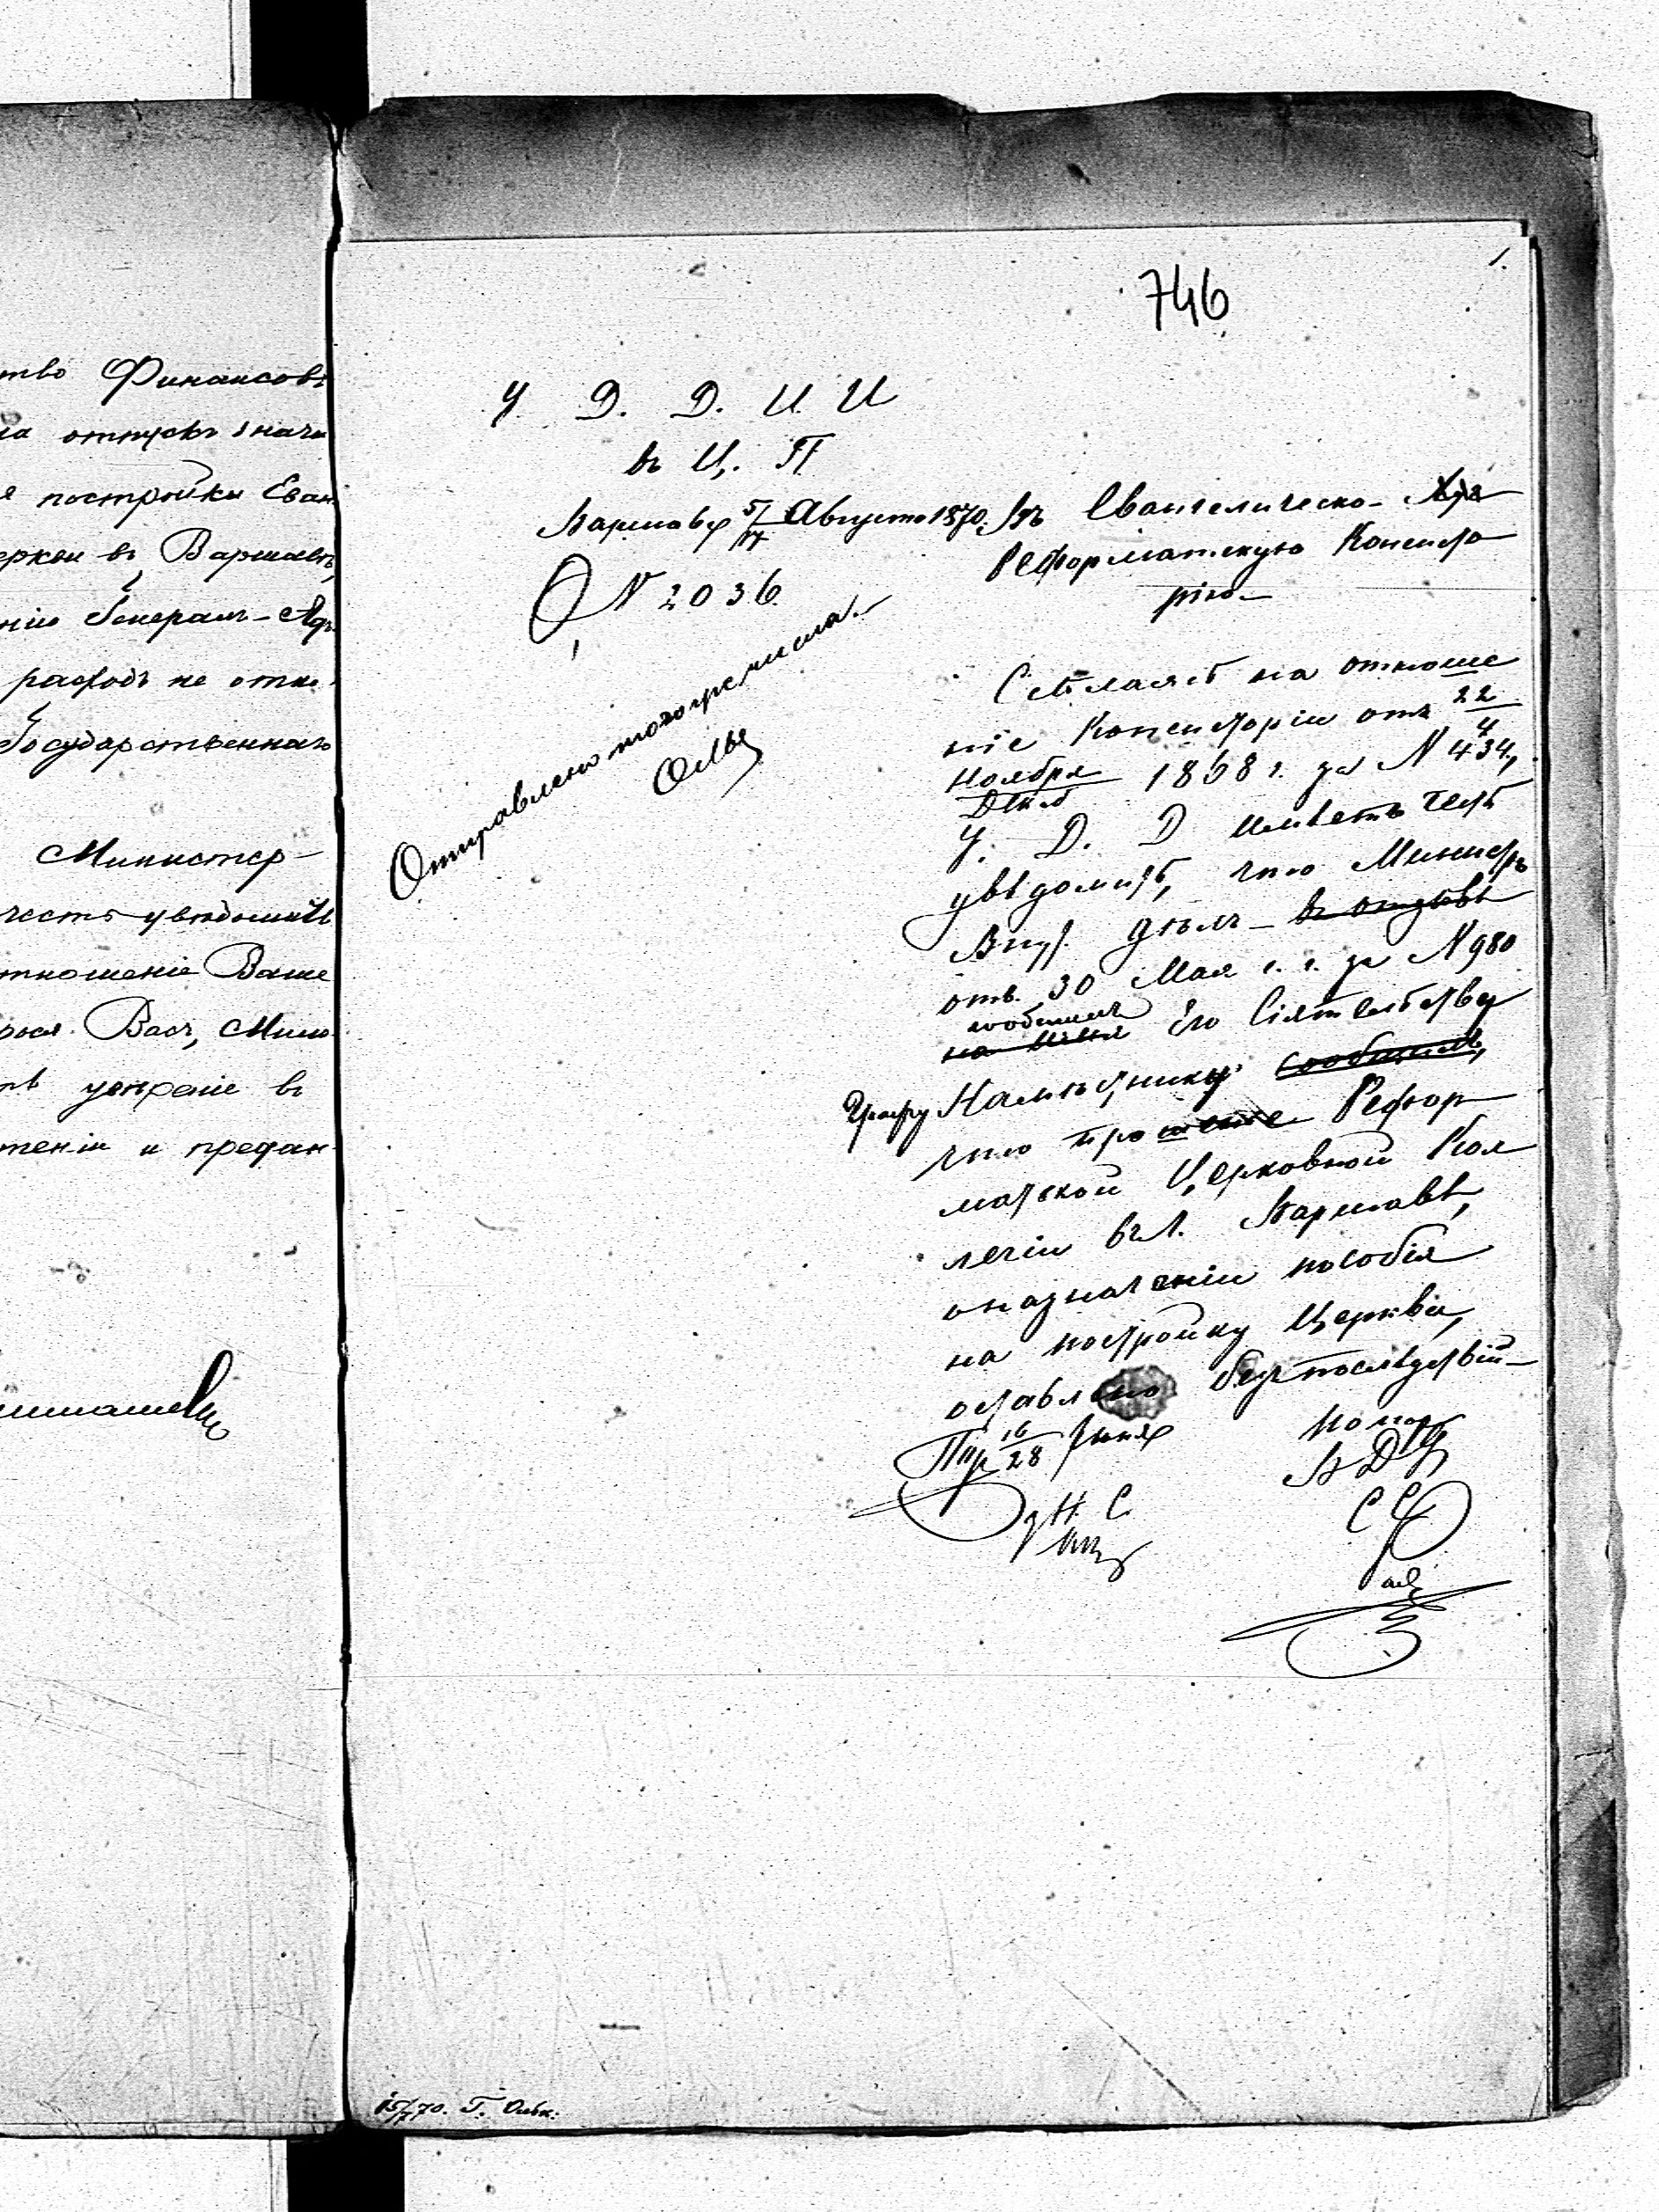 тво Финансовъ
на отпускъ значи
я постройки Еван
еркви въ Варшавѣ,
нію Генералъ-Ад
расходъ не отно
Государственнаго
Министер-
честь увѣдомить
тношеніе Ваше
рося Васъ, Мило
ть увѣреніе въ
теніи и предан
746
1.
У. Д. Д. И. И
въ Ц. П
Варшава 5/17 Августа 1870.
N 2036
Отправлено того же числа.
Въ Евангелическо-
Реформатскую Консисто
рію
Ссылаясь на отноше
ніе Консисторіи отъ 22/4
Ноября/Декаб 1868 г. за N 434,
У. Д. Д имѣетъ честь
увѣдомить, что Министръ
Внут. дѣлъ въ отзывѣ
отъ 30 Мая с. г. за N 980
сообщилъ Его Сіятельству
Графу Намѣстнику сообщилъ,
что прошеніе Рефор
матской Церковной Кол
легіи въ г. Варшавѣ,
о назначеніи пособія
на постройку Церкви,
оставлено безъ послѣдствій
16/28 Іюня
Н. С.
В Д
С С
15/7 70. Г.